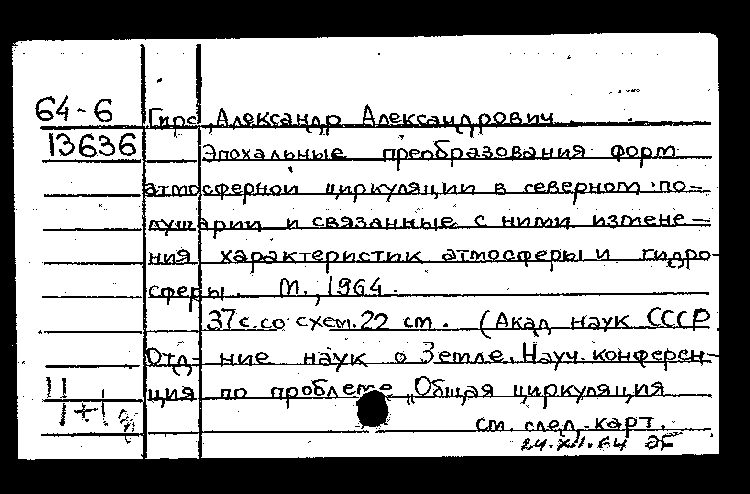 64-6
Гирс, Александр Александрович
13636
Эпохальные преобразования форм
атмосферной циркуляции в северном по=
лушарии и связанные с ними измене=
ния характеристик атмосферы и гидро-
сферы. М., 1964.
37 с. со схем. 22 см. (Акад наук СССР
Отд-ние наук о Земле. Науч. конферен-
ция по проблеме „Общая циркуляция
см. след. карт.
24.XII.64